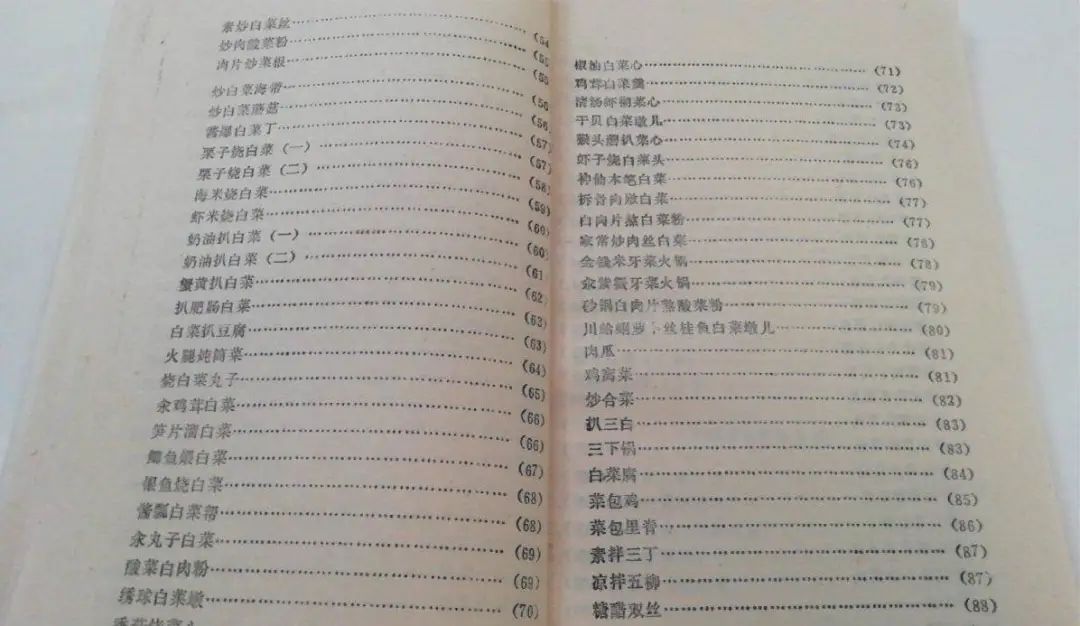 素炒白菜丝……(54
炒肉酸菜粉……(55
肉片炒菜根……(55
炒白菜海带……(56
炒白菜蘑菇……(56)
酱爆白菜丁……(57)
栗子烧白菜（一）……(57)
栗子烧白菜（二）……(58
海米烧白菜……(59
虾米烧白菜……(60)
奶油扒白菜（一）……(60)
奶油扒白菜（二）……(61
蟹黄扒白菜……(62
扒肥肠白菜……(63)
白菜扒豆腐……(63)
火腿炖筒菜……(64)
烧白菜丸子……(65)
氽鸡茸白菜……(66)
笋片溜白菜……(66)
鲫鱼煨白菜……(67)
银鱼烧白菜……(68)
酱瓤白菜帮……(68)
氽丸子白菜……(69)
酸菜白肉粉……(69)
绣球白菜墩……(70)
椒油白菜心……(71)
鸡茸白菜羹……(72)
清汤虾糊菜心……(73)
干贝白菜墩儿……(73)
猴头蘑扒菜心……(74)
虾子烧白菜头……(76)
神仙本笔白菜……(76)
拆骨肉墩白菜……(77)
白肉片熬白菜粉……(77)
家常炒肉丝白菜……(78)
金钱米牙菜火锅……(78)
牙菜火锅……(79)
砂锅白肉片熬酸菜粉……(79)
川蛤蜊萝卜丝桂鱼白菜墩儿……(80)
肉瓜……(81)
鸡离菜……(81)
炒合菜……(82)
扒三白……(83)
三下锅……(83)
白菜腐……(84)
菜包鸡……(85)
菜包里脊……(86)
素拌三丁……(87)
凉拌五柳……(87)
糖醋双丝……(88)